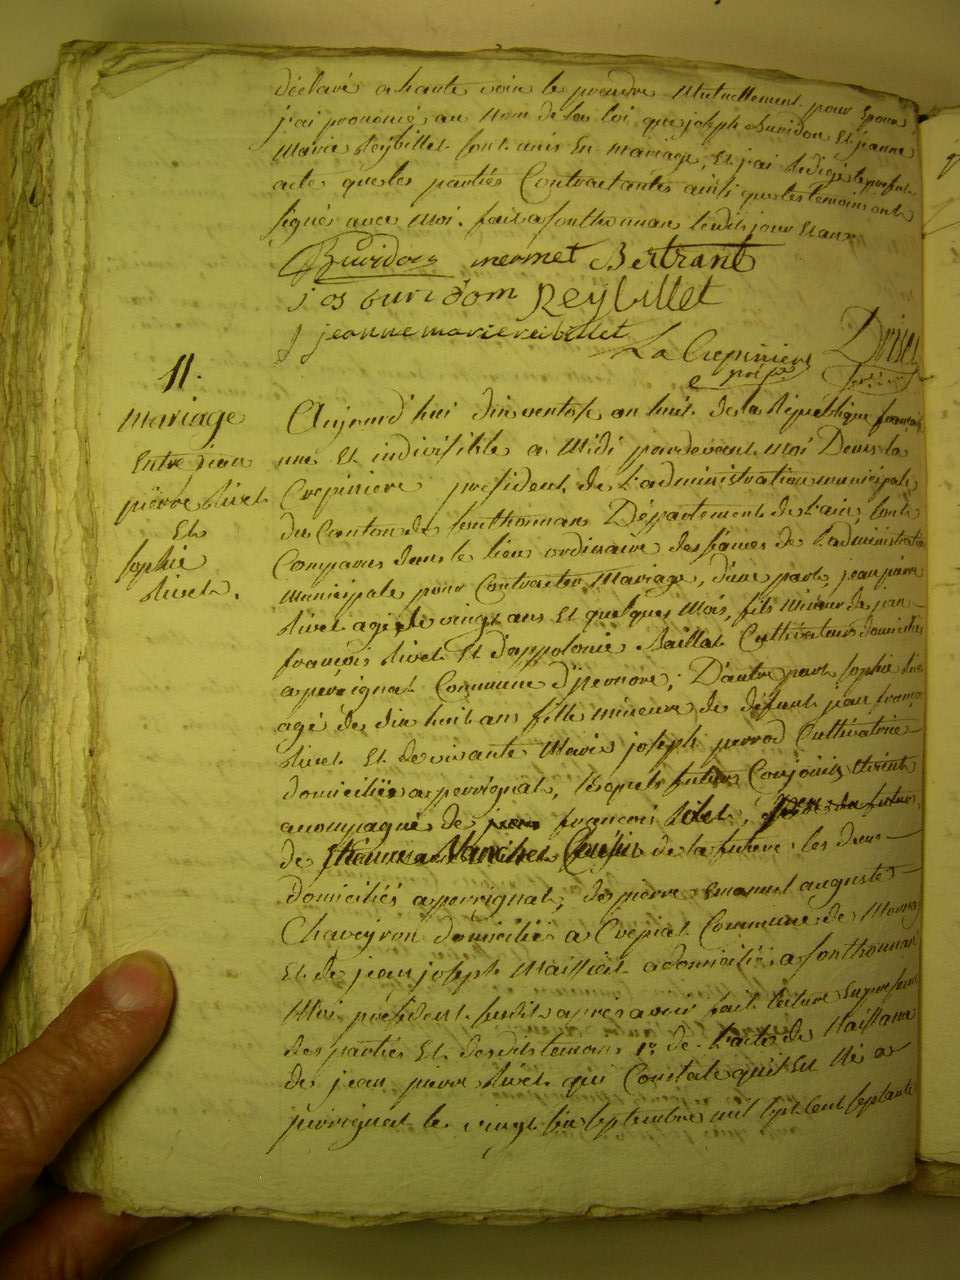 déclaré a haute voix le prendre Mutuellement pour Epoux
j'ai prononcé au Nom de la loi que joseph Buridon Et jeanne
Marie Reybillet sont unis En mariage, Et j'ai Rédigé le present
acte que les parties Contractantes ainsi que les temoins ont
signés avec Moi. fait a sonthonnax lesdits jour Et an
Buridon mermet Bertrant
jos buridom Reybillet
jeanne marie reibillet
La Crepiniere
11.
Mariage
Entre jean
pierre Rivet
Et
sophie
Rivet.
Aujourd'hui dix ventose an huit de la République francaise
une Et indivisible a Midi pardevant Moi Denis la
Crepiniere president de L'administration municipale
du Canton de sonthonnax Département de L'ain, sont
Comparus dans le lieu ordinaire des séances de L'administration
Municipale pour Contracter Mariage, d'une part, jean pierre
Rivet agé de vingt ans Et quelques Mois, fils Mineur de jean
françois Rivet Et d'appolonie Maillat Cultivateurs domiciliés
a perrignat Commune d'izernore; D'autre part sophie Rivet
agé de dix huit ans fille mineure de défunt jean françois
Rivet Et de vivante Marie joseph perrod Cultivatrice
domiciliée a perrignat, lesquels futurs Conjoints étoient
acompagné de françois Rivet, du futur,
de Cousin de la future. les deux
domiciliés a perrignat, de pierre Emanuel auguste
Chaveyron domicilié a Crepiat Commune de Mornay
Et de jean joseph Maissiat domicilié a sonthonnax
Moi président susdit apres avoir fait lecture En presence
des parties Et desdits temoins 1º de L'acte de Naissance
de jean pierre Rivet qui Constate qu'il Est Né a
perrignat le vingt six septembre mil sept Cent septante